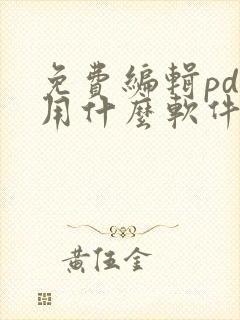 免費編輯pd
用什麼軟件
黃伍金